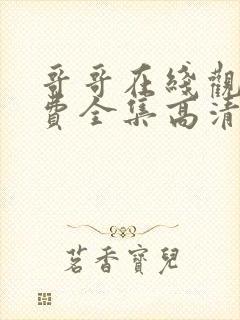 哥哥在綫觀
費全集高清
茗香寶兒